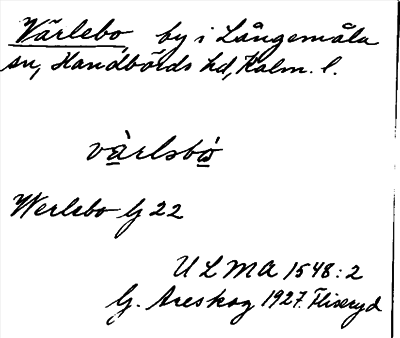 Värlebo by i Långemåla
sn, Handbörds hd, Kalm. l.
vàrlsbó
Werlebo G 22
ULMA 1548:2
G. Areskog 1927. Fliseryd